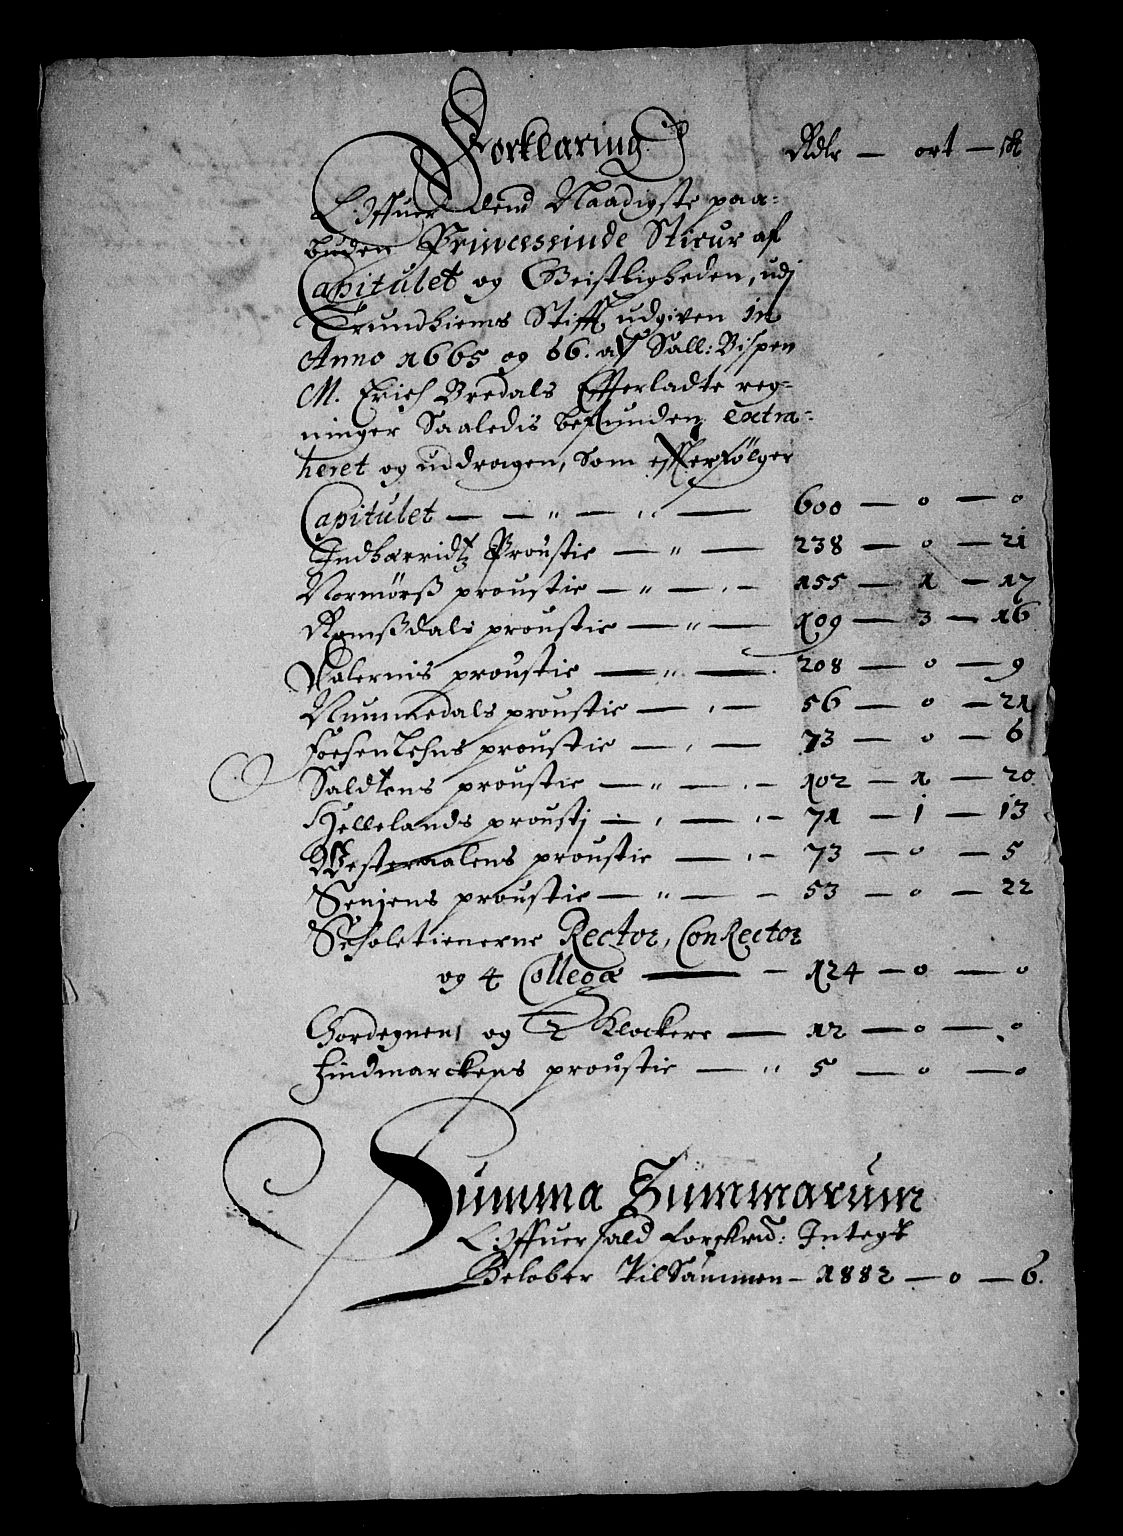 Forklaring Rdlr — ort — sk
Offuer dend Naadigste paa-
buden Princessinde Stieur af
Capitulet og Geistligheden, udj
Trundhiems Stifft udgiven in
Anno 1665 og 66. aff Sall: Bispen
M. Erich Bredals Effterladte reg-
ninger Saaledis befunden extra-
heret og uddragen, som effterfølger
Capitulet — — " — " — 600 — 0 — 0
Indherridtz Proustie — " — 238 — 0 — 21
Normørß proustie — " — . - 155 — 1 — 17
Romßdals proustie — " — 109 — 3 — 16
Dalernis proustie — " — . 208 — 0 — 9
Nummedals proustie — . — 56 — 0 — 21
Foesenlehns proustie — , — 73 — 0 — 6
Saldtens proustie — " — . - 102 — 1 — 20
Hellelands proustj — , — . - 71 — 1 — 13
Westeraalens proustie — . - 73 — 0 — 5
Senjens proustie — " — - 53 — 0 — 22
Scholetienerne Rector, ConRector
og 4 Collega — - 124 — 0 — 0
Chordegnen, og 2 Klockere — 12 — 0 — 0
Findmarckens proustie — " 5 — 0 — 0
Summa Summarum
Offuer
Beløber Tilsammen - 1882 — 0 — 6.